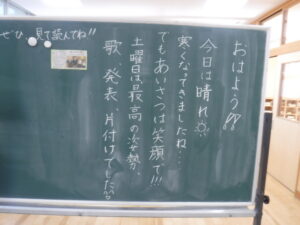 おはよう!!
今日は晴れ☼
寒くなってきましたね…
でもあいさつは笑顔で!!!
土曜日は、最高の姿勢、
歌、発表、片付けでした
ぜひ、見て読んでね!!